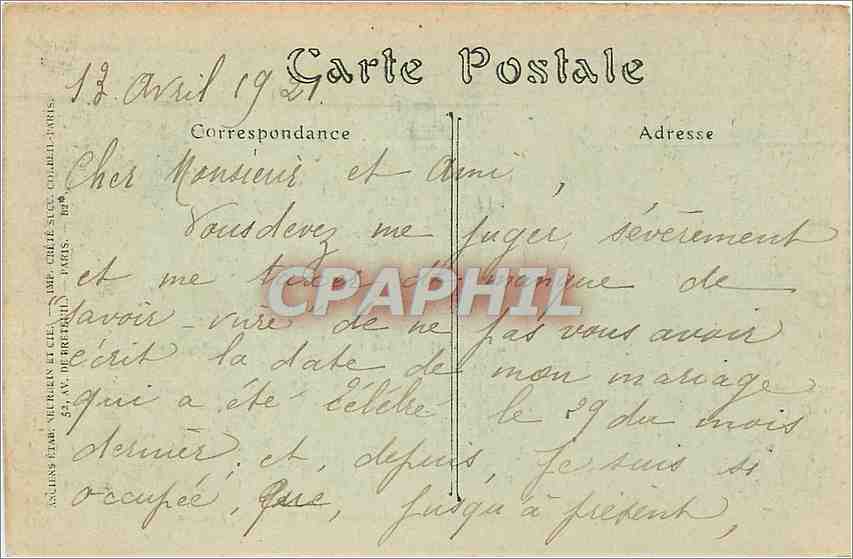 Carte Postale
13 Avril 1921.
Correspondance
Adresse
Cher Monsieur et Ami,
Vous devez me juger sévèrement
et me taxer de manque de
savoir-vivre de ne pas vous avoir
écrit la date de mon mariage
qui a été célébré le 29 du mois
dernier, et, depuis, je suis si
occupée, que, jusqu'à présent,
ANCIENS ÉTAB. NEURDEIN ET CIE. — IMP. CRÉTÉ SUCC. CORBEIL-PARIS.
52, AV. DE BRETEUIL — PARIS. —
CPAPHIL